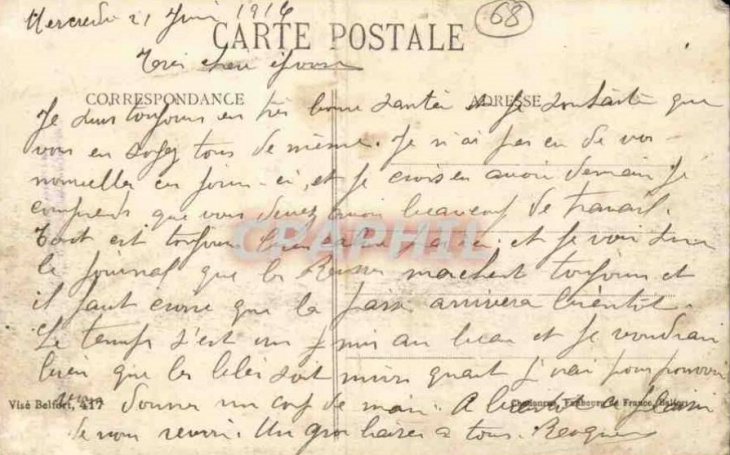 Mercredi 21 Juin 1916
68
CARTE POSTALE
Très chère Yvonne
CORRESPONDANCE
ADRESSE
Je suis toujours en très bonne santé et je souhaite que
vous en soyez tous de même. Je n'ai pas eu de vos
nouvelles ces jours-ci, et je crois en avoir demain. Je
comprends que vous devez avoir beaucoup de travail.
Tout est toujours bien calme par ici et je vois sur
CPAPHIL
le journal que les Russes marchent toujours et
il faut croire que la paix arrivera bientôt.
Le temps s'est mis au beau et je voudrais
bien que les blés soit murs quant j'irai pour pouvoir
Visé Belfort, 417
donner un coup de main. A bientôt le plaisir
Faubourg de France, Belfort
de vous revoir. Un gros baiser a tous.